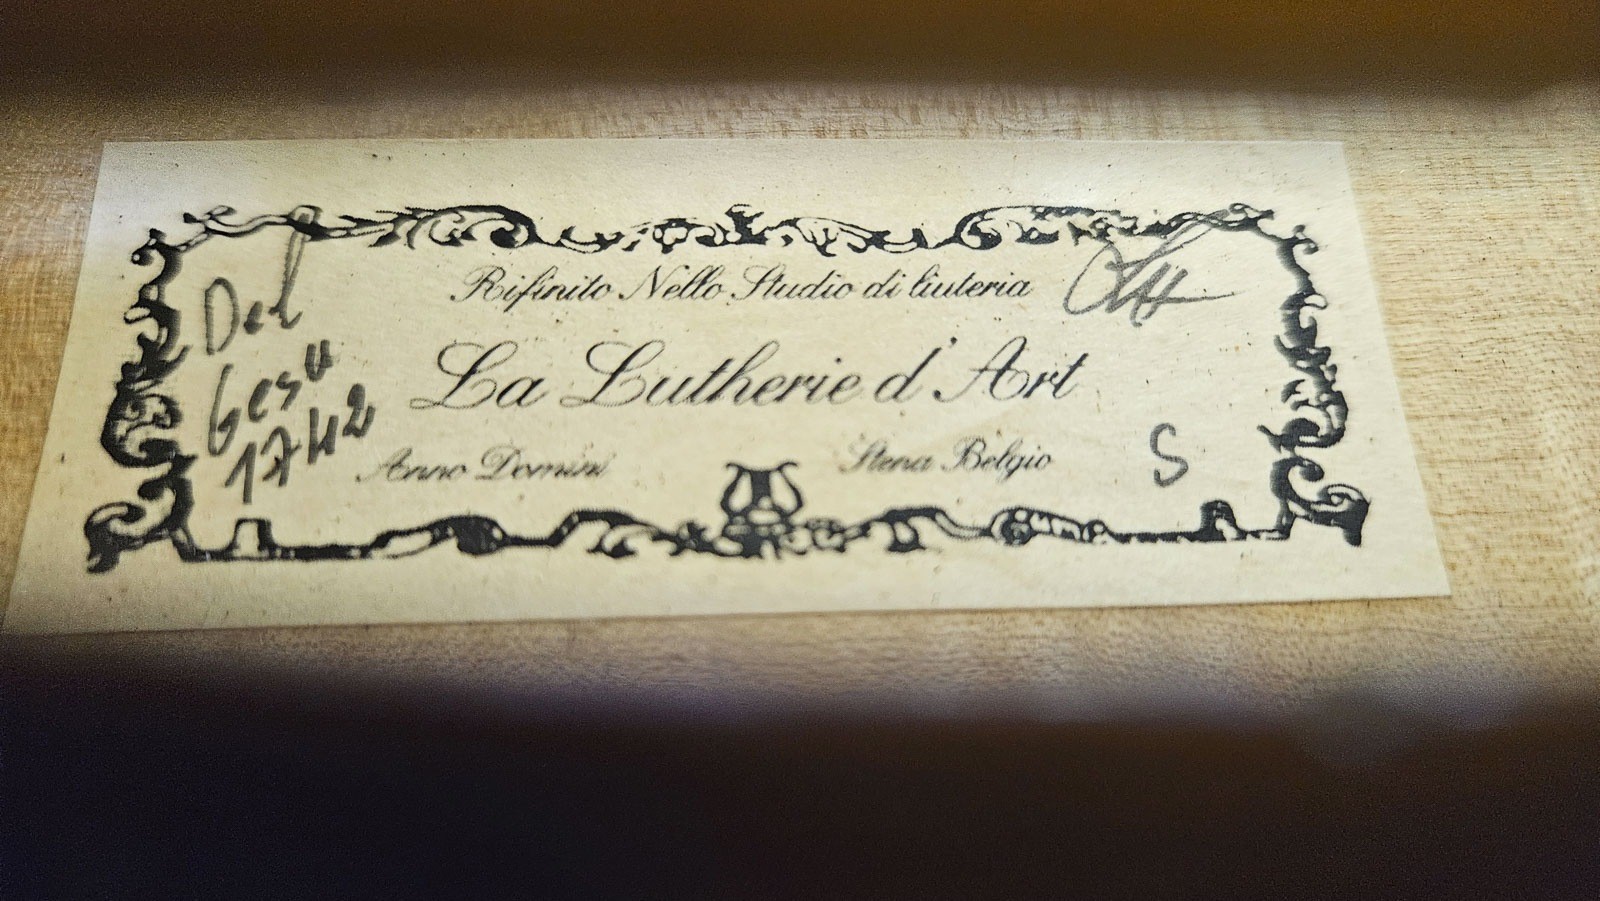 Rifinito Nello Studio di liuteria
La Lutherie d'Art
Anno Domini Stena Belgio
Del
Gesu
1742
S